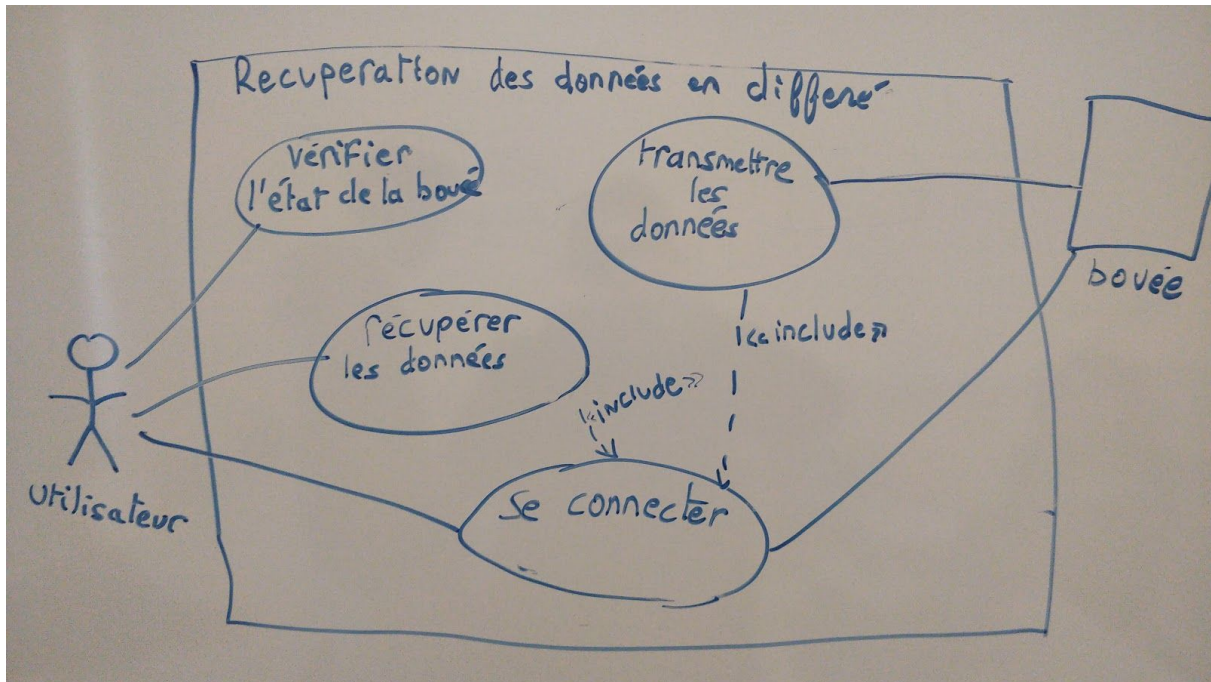 Recuperation des données en differé
vérifier
l'état de la boué
transmettre
les
données
bouée
récupérer
les données
<<include>>
<<include>>
Se connecter
Utilisateur